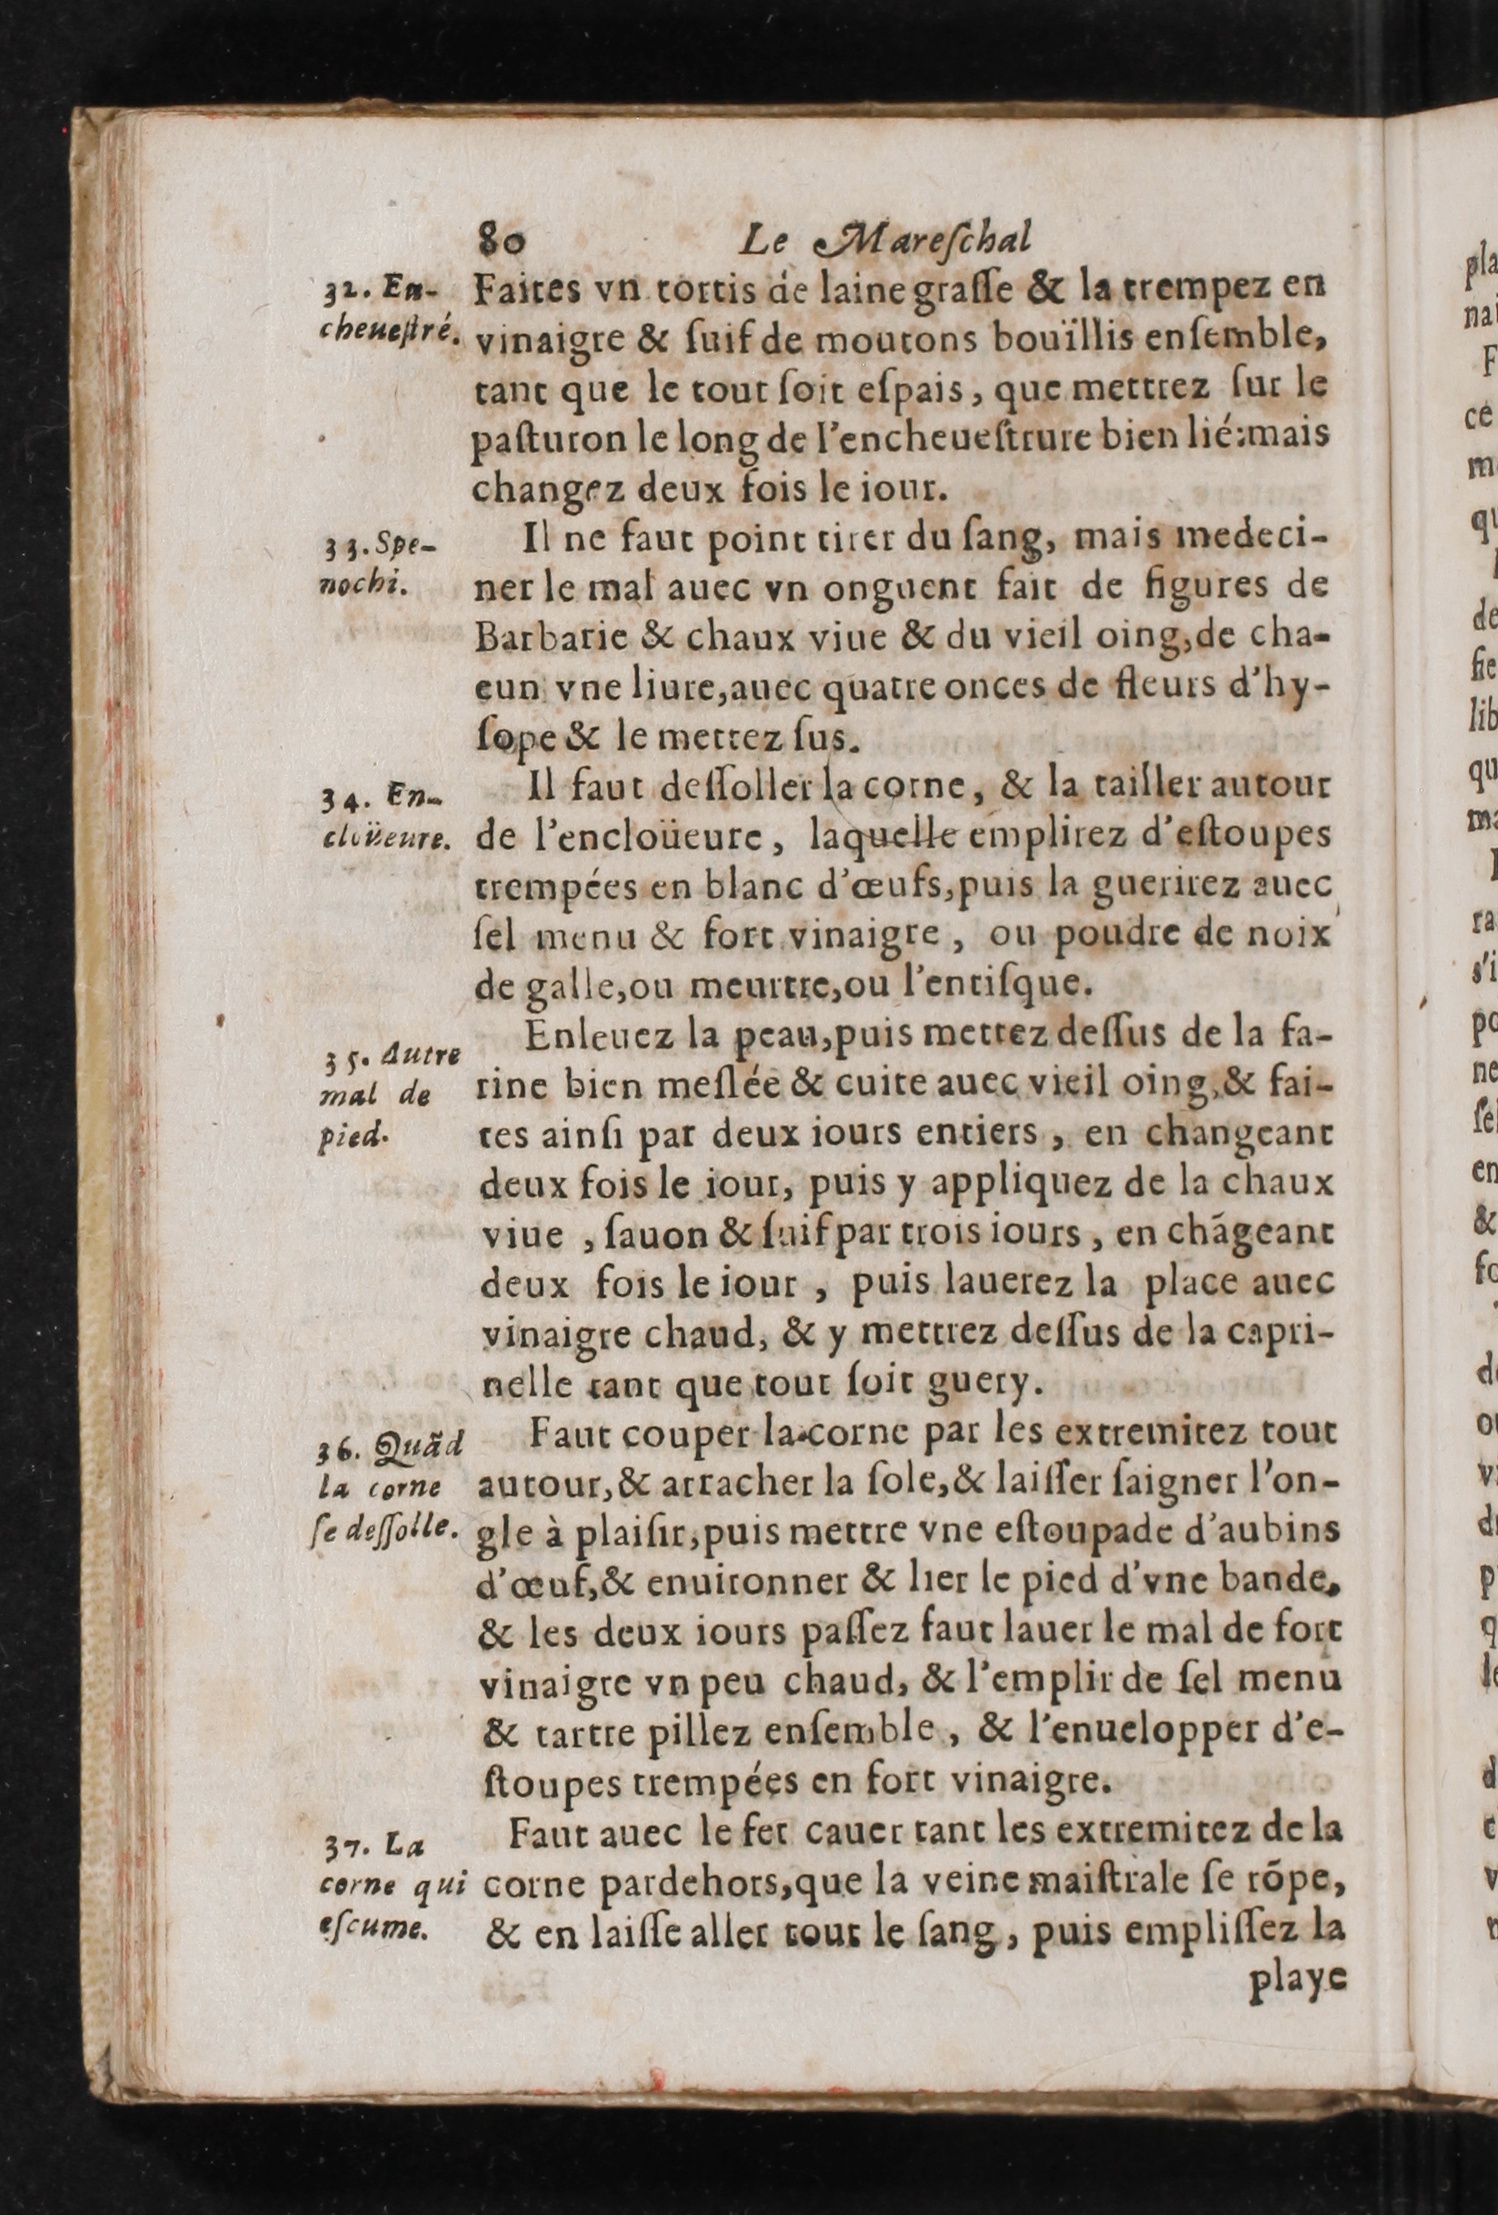 80 Le Mareſchal
32. En-
cheueſtré.
Faites vn tortis de laine graſſe & la trempez en
vinaigre & ſuif de moutons bouïllis enſemble,
tant que le tout ſoit eſpais, que mettrez ſur le
paſturon le long de l'encheueſtrure bien lié:mais
changez deux fois le iour.
33. Spe-
nochi.
Il ne faut point tirer du ſang, mais medeci-
ner le mal auec vn onguent fait de figures de
Barbarie & chaux viue & du vieil oing,de cha-
eun vne liure,auec quatre onces de fleurs d'hy-
ſope & le mettez ſus.
34. En-
cloüeure.
Il faut deſſoller la corne, & la tailler autour
de l'encloüeure, laquelle emplirez d'eſtoupes
trempées en blanc d'œufs,puis la guerirez auec
ſel menu & fort vinaigre, ou poudre de noix
de galle,ou meurtre,ou l'entiſque.
35. Autre
mal de
pied.
Enleuez la peau,puis mettez deſſus de la fa-
rine bien meſlée & cuite auec vieil oing,& fai-
tes ainſi par deux iours entiers, en changeant
deux fois le iour, puis y appliquez de la chaux
viue, ſauon & ſuif par trois iours, en chãgeant
deux fois le iour, puis lauerez la place auec
vinaigre chaud, & y mettrez deſſus de la capri-
nelle tant que tout ſoit guery.
36. Quãd
la corne
ſe deſſolle.
Faut couper la corne par les extremitez tout
autour,& arracher la ſole,& laiſſer ſaigner l'on-
gle à plaiſir,puis mettre vne eſtoupade d'aubins
d'œuf,& enuironner & lier le pied d'vne bande,
& les deux iours paſſez faut lauer le mal de fort
vinaigre vn peu chaud, & l'emplir de ſel menu
& tartre pillez enſemble, & l'enuelopper d'e-
ſtoupes trempées en fort vinaigre.
37. La
corne qui
eſcume.
Faut auec le fer cauer tant les extremitez de la
corne pardehors,que la veine maiſtrale ſe rõpe,
& en laiſſe aller tout le ſang, puis empliſſez la
playe